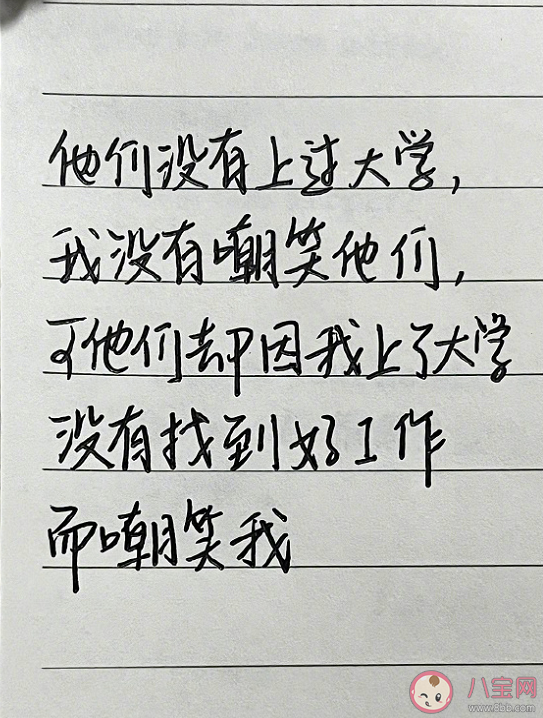 他们没有上过大学，
我没有嘲笑他们，
可他们却因我上了大学
没有找到好工作
而嘲笑我
八宝网
www.8bb.com